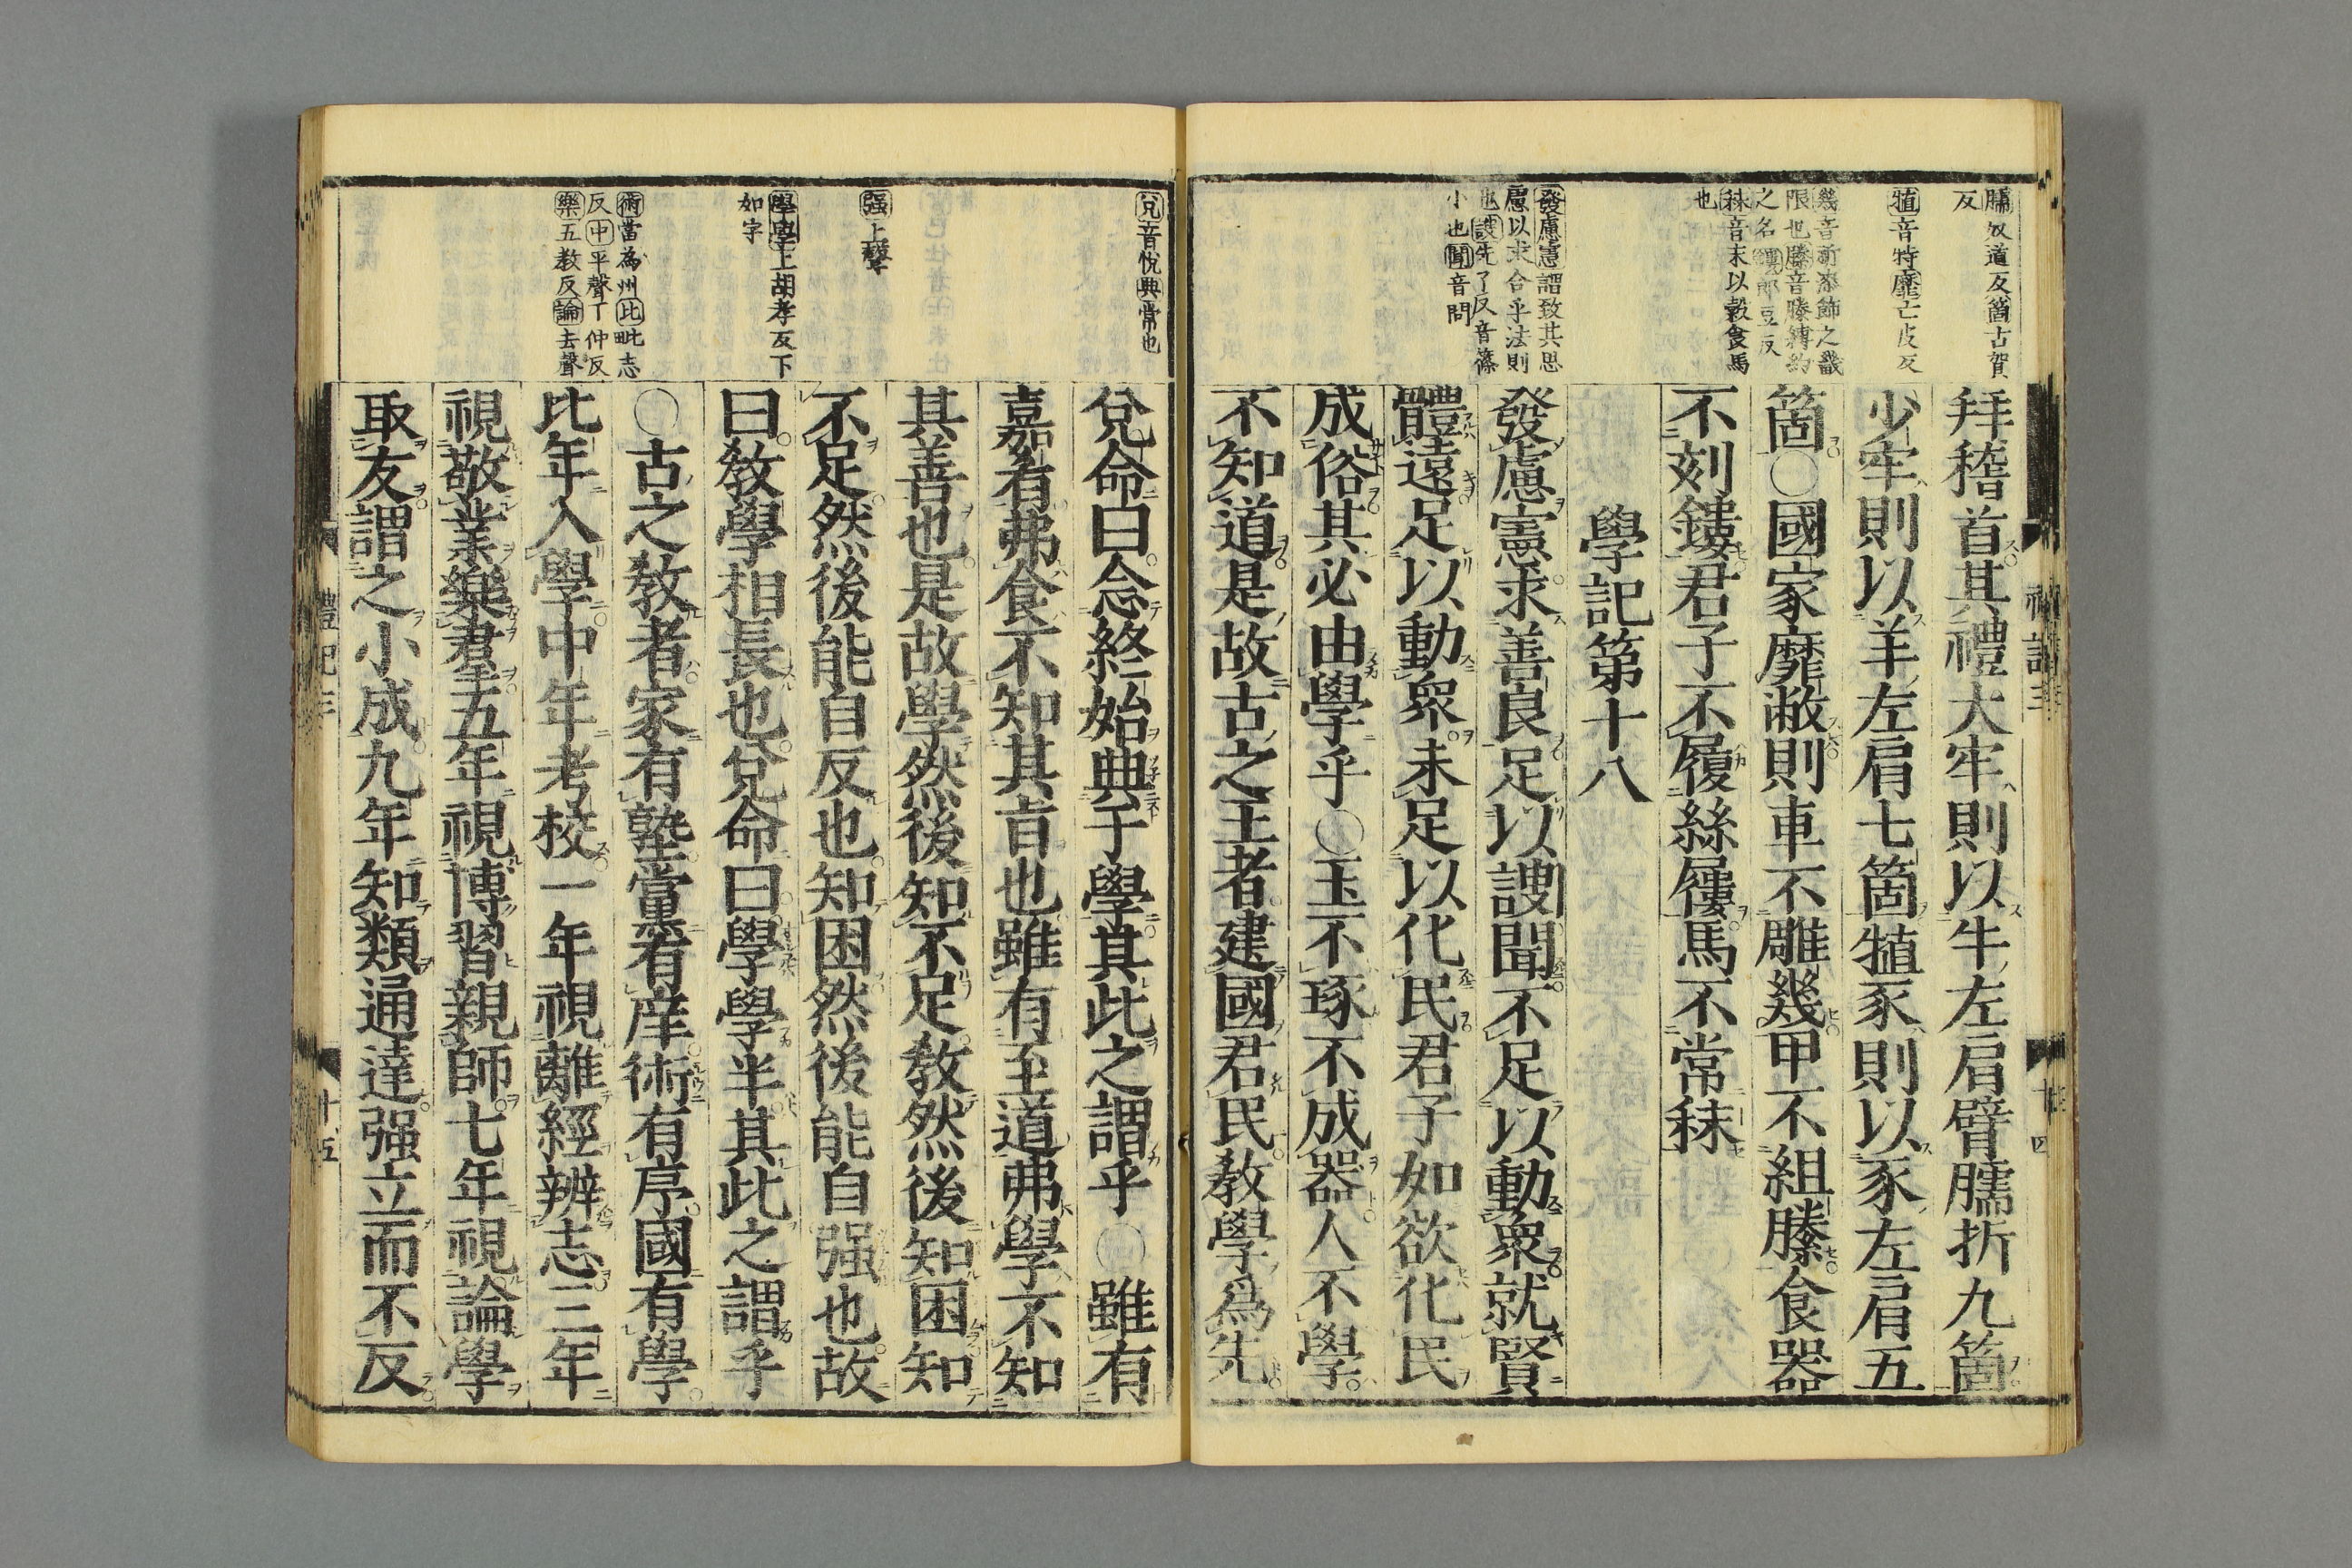 臑奴道反箇古賀
反
犆音特靡亡皮反
幾音祈漆飾之畿
限也縢音騰縛約
之名鏤郎豆反
秣音末以穀食馬
也
發慮憲謂致其思
慮以求合乎法則
也謏先了反音篠
小也聞音問
拜稽首其禮大牢則以牛左肩臂臑折九箇
少牢則以羊左肩七箇犆豕則以豕左肩五
箇○國家靡敝則車不雕幾甲不組縢食器
不刻鏤君子不履絲屨馬不常秣
學記第十八
發慮憲求善良足以謏聞不足以動衆就賢
體遠足以動衆未足以化民君子如欲化民
成俗其必由學乎○玉不琢不成器人不學
不知道是故古之王者建國君民教學爲先
兌音悅典常也
强上聲
學學上胡孝反下
如字
術當為州比毗志
反中平聲丁仲反
樂五教反論去聲
兌命曰念終始典于學其此之謂乎○雖有
嘉肴弗食不知其旨也雖有至道弗學不知
其善也是故學然後知不足教然後知困知
不足然後能自反也知困然後能自强也故
曰教學相長也兌命曰學學半其此之謂乎
○古之教者家有塾黨有庠術有序國有學
比年入學中年考校一年視離經辨志三年
視敬業樂羣五年視博習親師七年視論學
取友謂之小成九年知類通達强立而不反
禮記三
十五